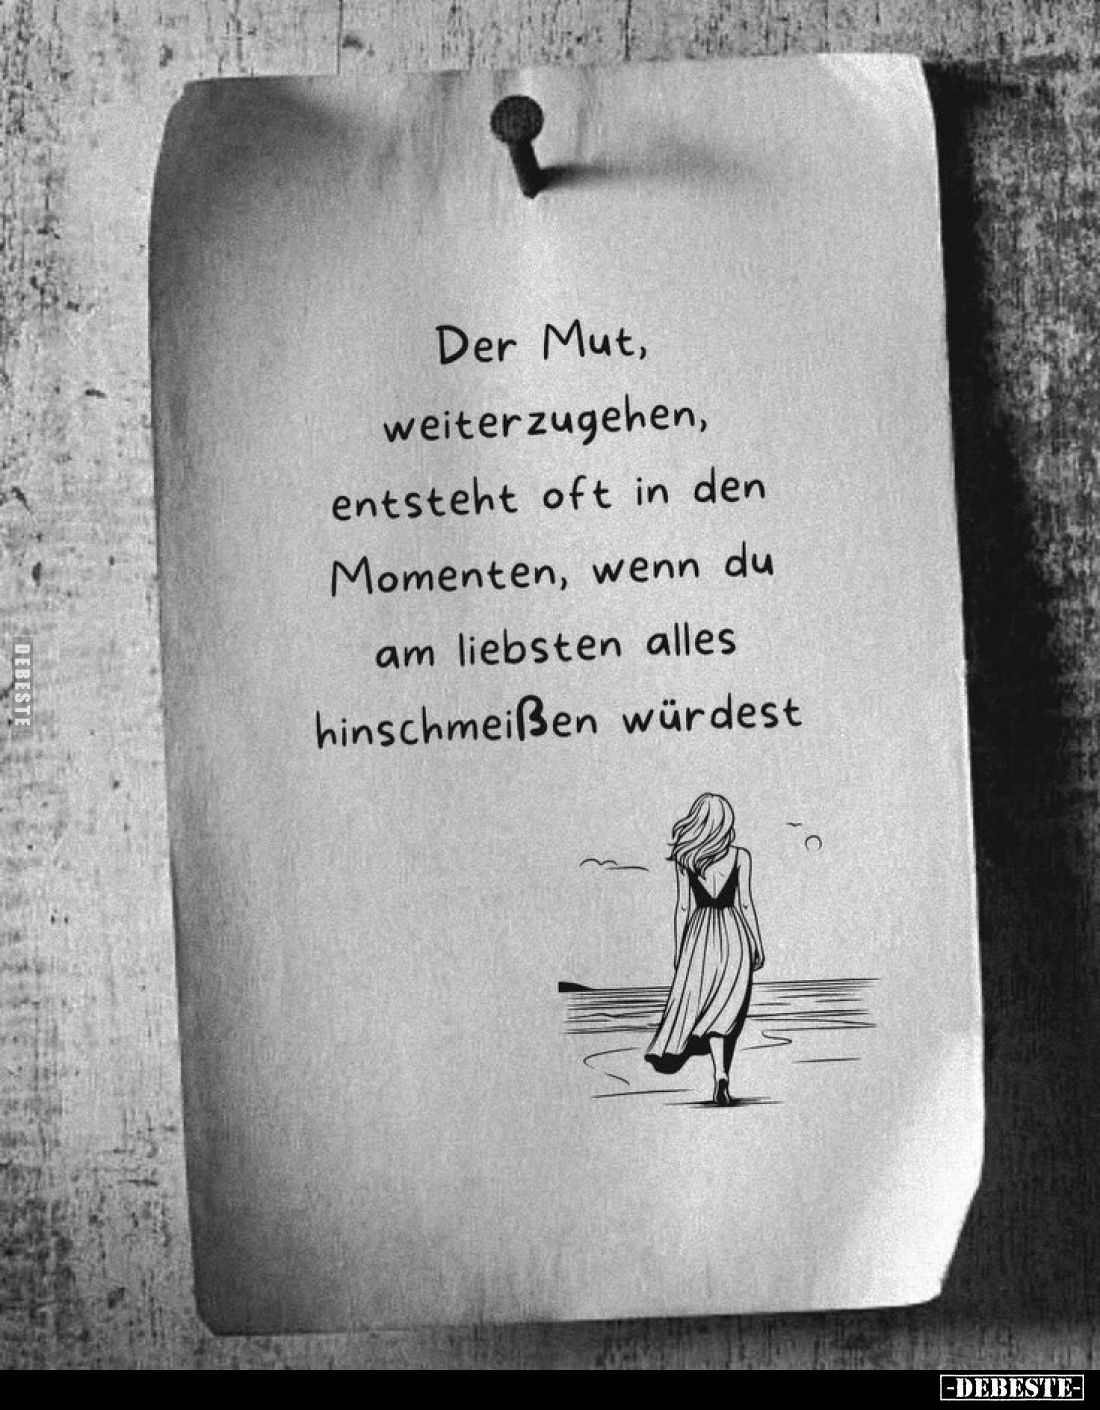 Der Mut,
weiterzugehen,
entsteht oft in den
Momenten, wenn du
am liebsten alles
hinschmeißen würdest
DEBESTE
-DEBESTE-